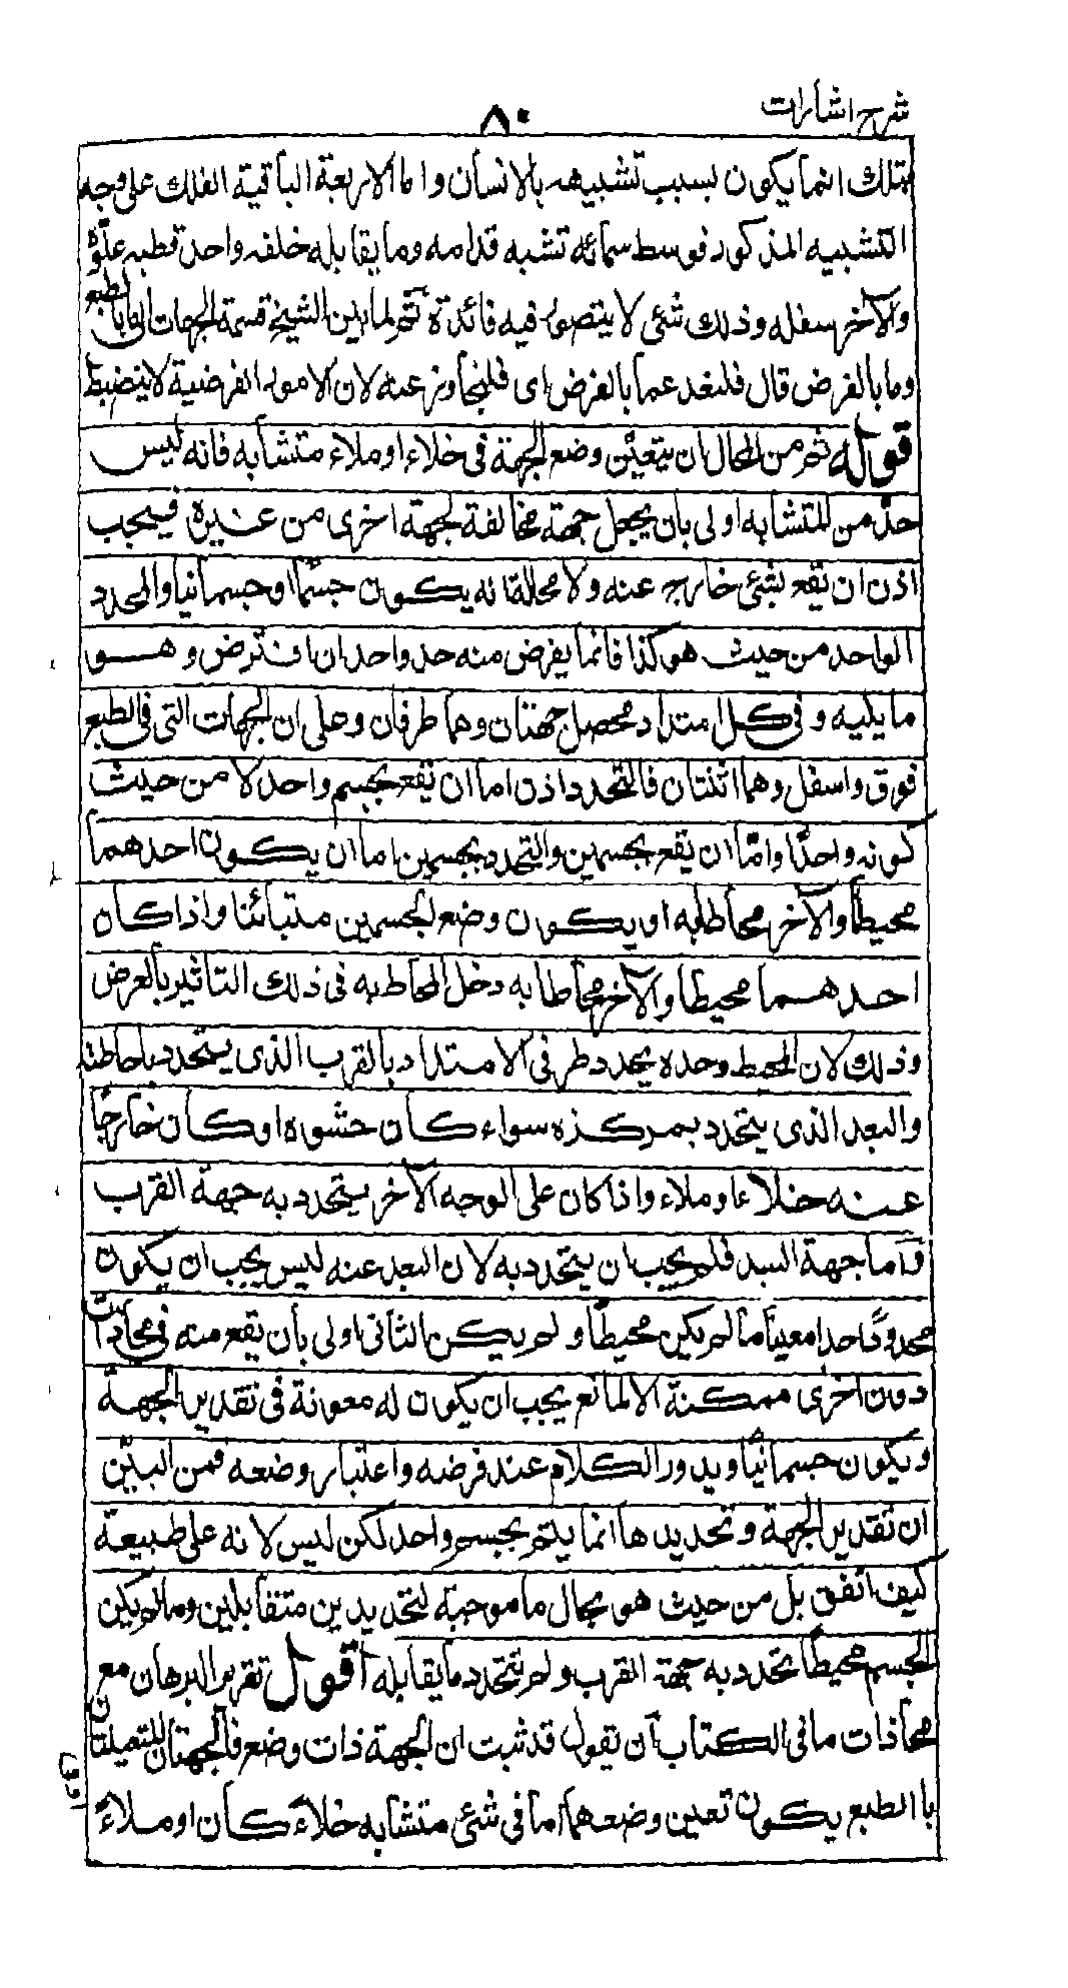 شرح اشارات
۸۰
بتلك انما يكون بسبب تشبيهه بالانسان واما الاربعة الباقية الفلك على وجه
التشبيه المذكور فوسط سمائه تشبه قدامه وما يقابله خلفه واحد قطبه علوّه
والآخر سفله وذلك شئ لا يتصور فيه فائدة ثم لما بين الشيخ قسمة الجهات الى ما بالطبع
وما بالفرض قال فلنعد عما بالفرض اى فلنجاوز عنه لان الامور الفرضية لا ينضبط
قوله ثم من المحال ان يتعيّن وضع الجهة فى خلاء او ملاء متشابه فانه ليس
حدّ من المتشابه اولى بان يجعل جهة مخالفة لجهة اخرى من غيره فيجب
اذن ان يقع بشئ خارج عنه ولا محالة انه يكون جسمًا او جسمانيا والمحدد
الواحد من حيث هو كذا فانما يفرض منه حد واحد ان افترض وهو
ما يليه وفى كل امتداد محصل جهتان وهما طرفان وعلى ان الجهات التى فى الطبع
فوق واسفل وهما اثنتان فالتحدد اذن اما ان يقع بجسم واحد لا من حيث
كونه واحدًا وامّا ان يقع بجسمين والتحدد بجسمين اما ان يكون احدهما
محيطًا والآخر محاطا به او يكون وضع الجسمين متبائنا واذا كان
احدهما محيطا والآخر محاطا به دخل المحاط به فى ذلك التاثير بالعرض
وذلك لان المحيط وحده يحدد طرفى الامتداد بالقرب الذى يتحدد باحاطته
والبعد الذى يتحدد بمركزه سواء كان حشوه او كان خارجًا
عنه خلاءا وملاء واذا كان على الوجه الآخر يتحدد به جهة القرب
وآما جهة البعد فلم يجب ان يتحدد به لان البعد عنه ليس يجب ان يكون
محدودًا حدا معينا ما لم يكن محيطًا ولم يكن الثانى اولى بان يقع منه فى محاذات
دون اخرى ممكنة الا لمانع يجب ان يكون له معونة فى تقدير الجهة
ويكون جسمانيًا ويدور الكلام عند فرضه واعتبار وضعه فمن البيّن
ان تقدير الجهة وتحديدها انما يتم بجسم واحد لكن ليس لانه على طبيعة
كيف اتفق بل من حيث هو بحال ما موجبة لتحديدين متقابلين وما لم يكن
الجسم محيطًا تحدد به جهة القرب ولم يتحدد ما يقابله اقول تقرير البرهان مع
محاذات ما فى الكتاب آن نقول قد ثبت ان الجهة ذات وضع فالجهتان المتعينتان
با الطبع يكون تعين وضعهما اما فى شئ متشابه خلاءً كان او ملاءً